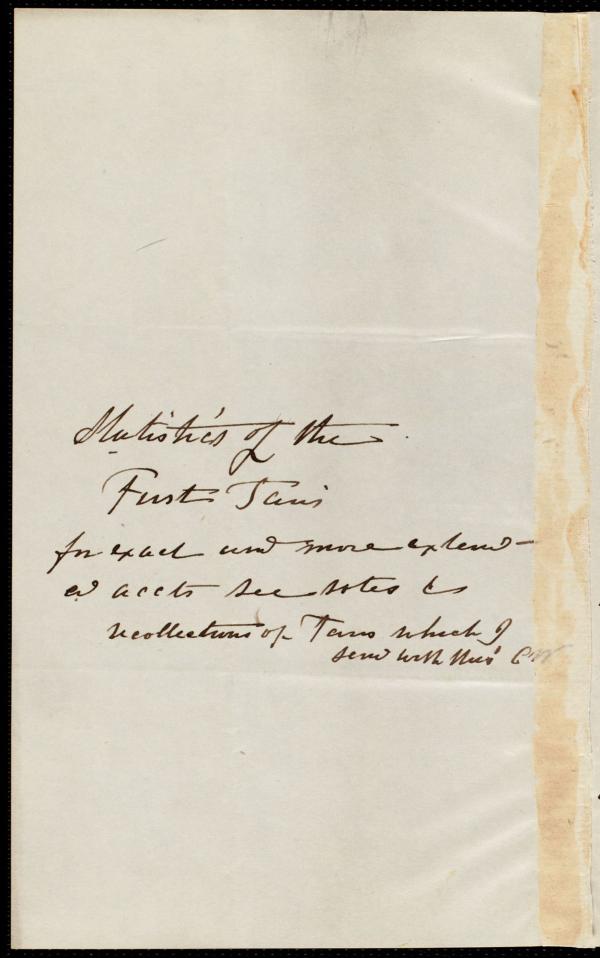 Statistics of the
First Fairs
for exact and more extend-
ed accts see notes &
recollections of Fairs which I
send with this